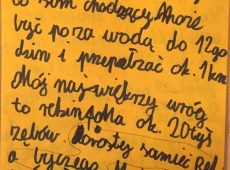 to som chodzący Może
być poza wodą do 12go
dzin i przepełzać ok. 1 km
Mój największy wróg
to rekin. Ma ok. 20 tyś
zębów. Dorosły samiec